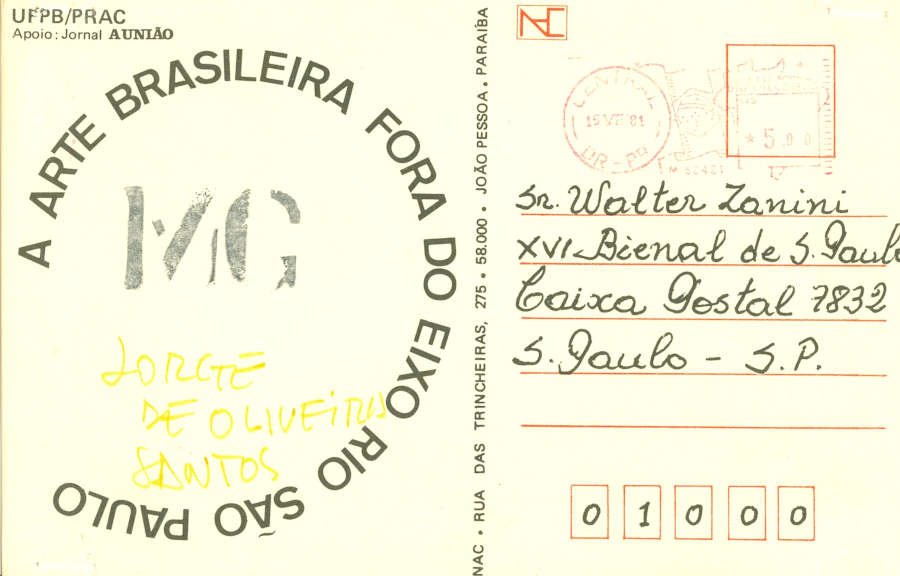 UFPB/PRAC
Apoio: Jornal A UNIÃO
A ARTE BRASILEIRA FORA DO EIXO RIO SÃO PAULO
MG
DE OLIVEIRA
SANTOS
NAC • RUA DAS TRINCHEIRAS, 275 • 58.000 • JOÃO PESSOA • PARAÍBA
NAC
CENTRAL
15 VII 81
DR-PB
*5,00
Sr. Walter Zanini
XVI Bienal de S. Paulo
Caixa Postal 7832
S. Paulo - S.P.
0 1 0 0 0